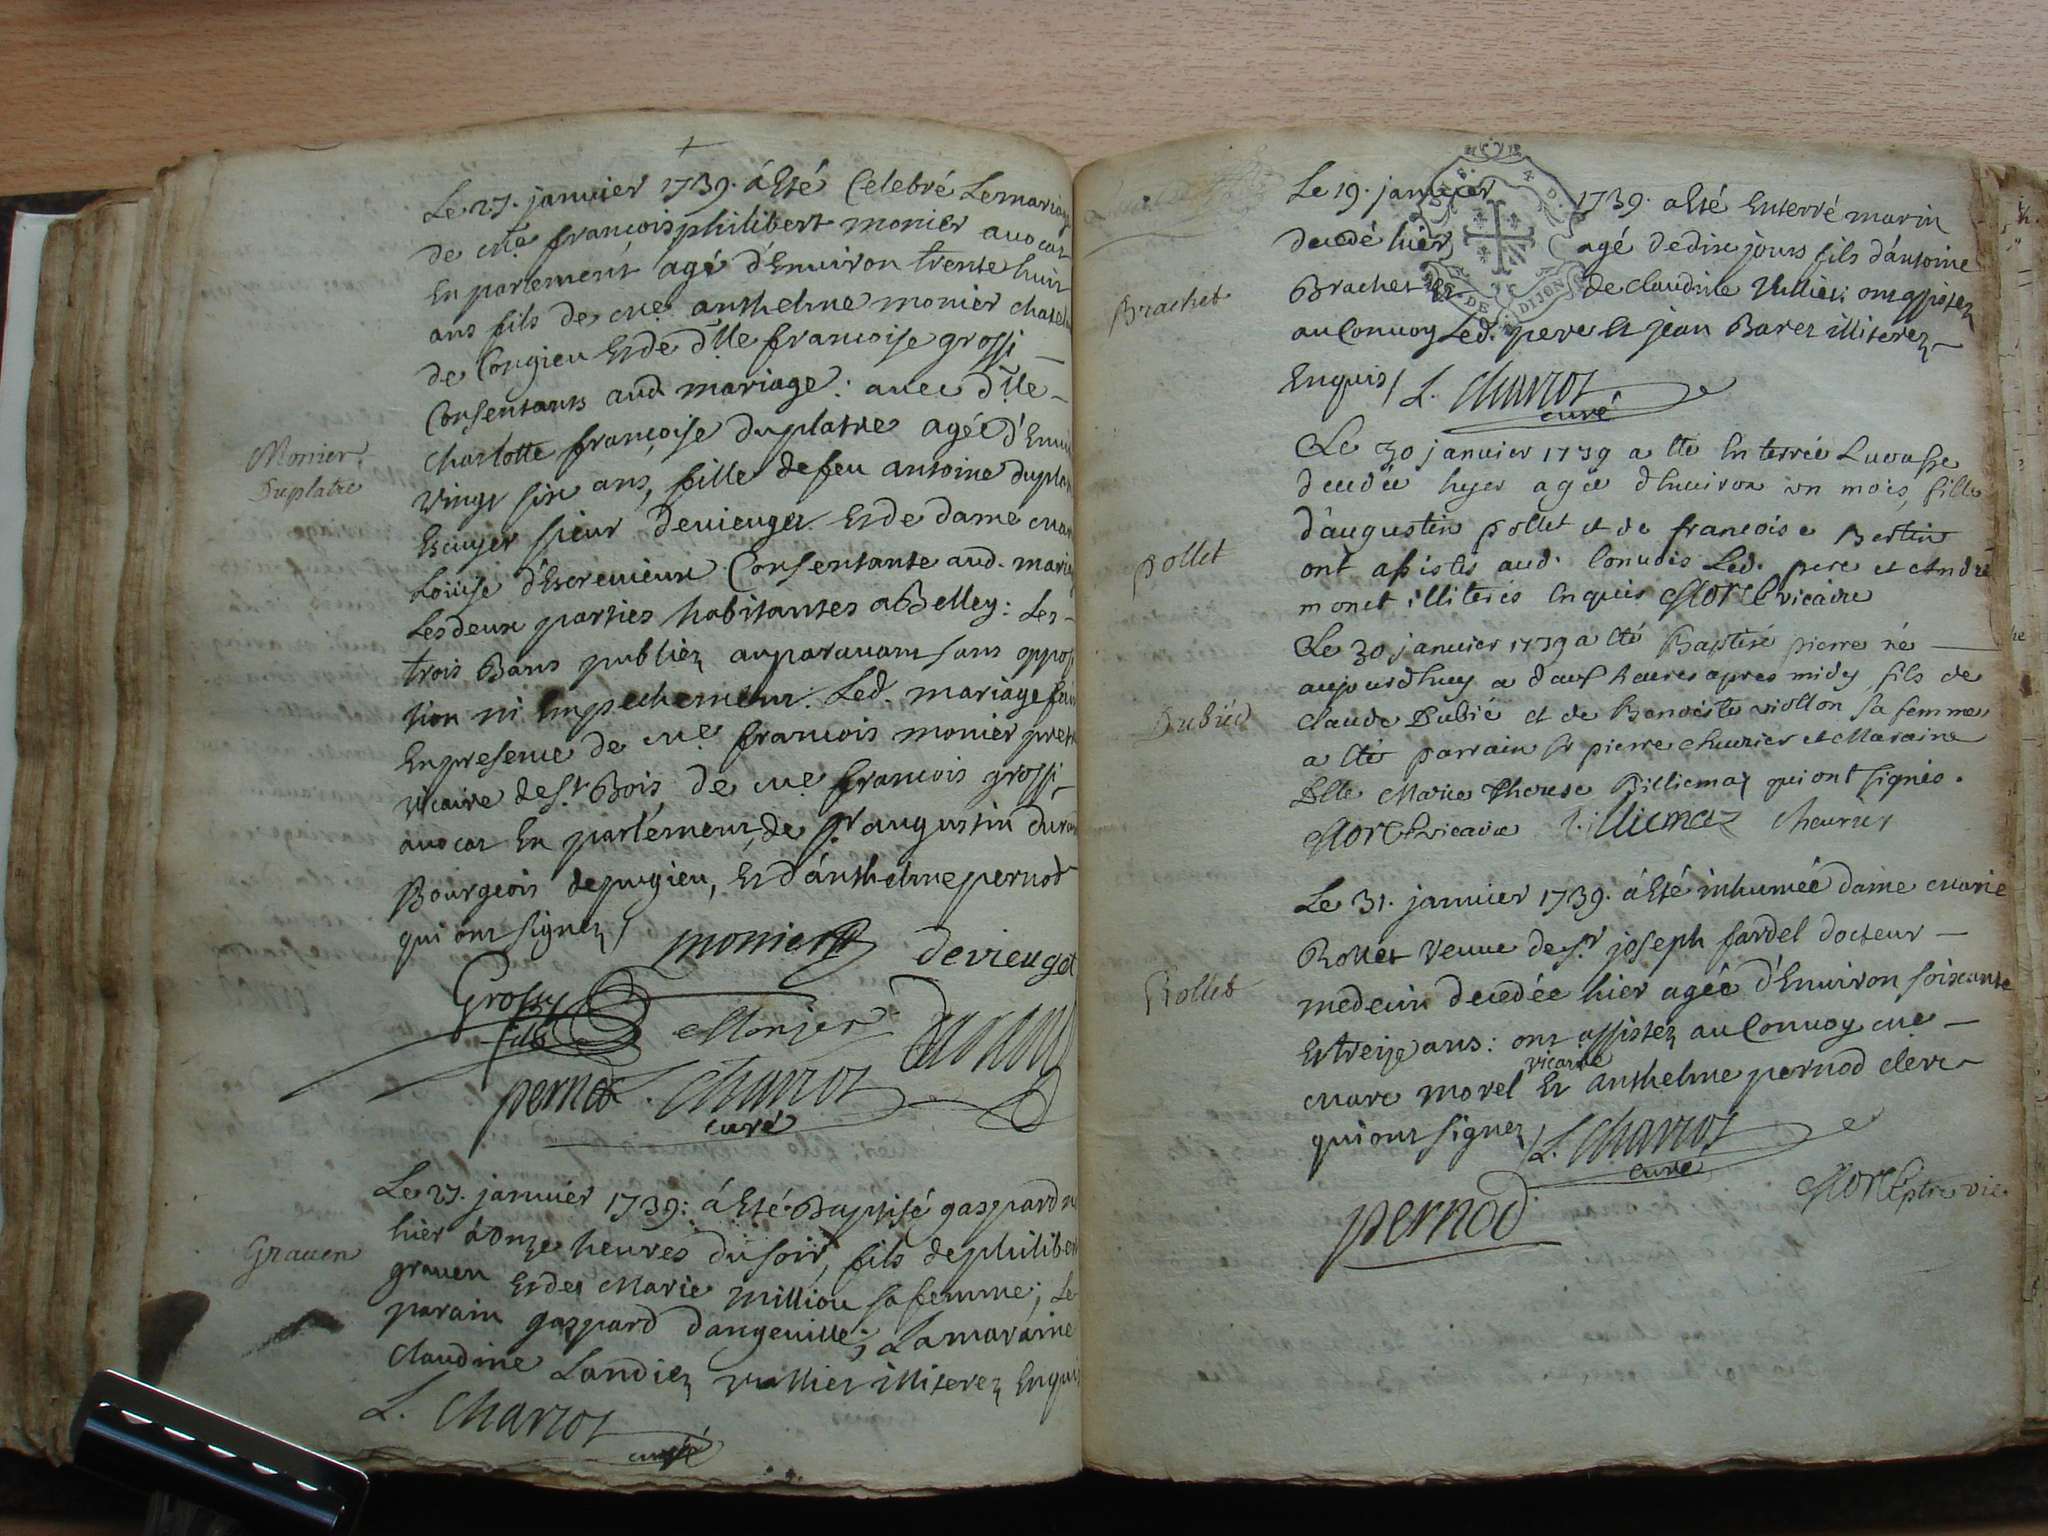 Le 27. janvier 1739. á Esté Celebré Le mariage
de Me françois philibert monier avocat
En parlement agé d'Environ trente huit
ans fils de Me. anthelme monier chatel
de Congieu Et de dlle francoise grossi
Consentants aud mariage: avec dlle
Monier
Duplatre
charlotte françoise duplatre agée d'Envi
vingt six ans, fille de feu antoine duplat
Escuyer sieur devieuget Et de dame mar
Louise d'Escrevieux Consentante aud. maria
Les deux parties habitantes a Belley: Les
trois Bans publiez auparavant sans oppos
tion ni Empechement. Led. mariage fait
En presence de Me francois monier pret
vicaire de St Bois, de Me francois grossi
avocat En parlement, de Sr augustin du
Bourgeois de pugieu, Et d'anthelme pernod
qui ont signez /
monier devieuget
Grossy
fils Monier
pernod L. Charcot
curé
Le 27. janvier 1739: á Esté Baptisé gaspard n
hier à Onze heures du soir, fils de philiber
Graven
graven Et de Marie milliou sa femme; Le
parain gaspard dangeville; La maraine
Claudine Landiez illiterez Enquis
L. Charcot
curé
Le 19. janvier 1739. a Esté Enterré marin
decedé hier agé de dix jours fils d'antoine
Brachet
Brachet Et de claudine ont assistez
au Convoy Led. pere Et jean Baret illiterez
Enquis / L. Charcot
curé
DE DIJON
Le 30 janvier 1739 a eté Enterrée
decedée hyer agée d'Environ un mois, fille
d'augustin pollet et de francoise Bertin
Pollet
ont assistés aud. Convois Led. pere et André
monet illiterés Enquis Morel vicaire
Le 30 janvier 1739 a eté Baptisé pierre né
aujourdhuy a heures apres midy fils de
Dubiéd
Claude Dubié et de Benoiste violton sa femme
a eté parrain Sr pierre cheurier et Maraine
Dlle Marie Therese Billiemaz qui ont signés.
Morel vicaire Billiemaz Cheurier
Le 31. janvier 1739. á Esté inhumée dame Marie
Rollet
Rollet veuve de Sr joseph fardel docteur
medecin decedée hier agée d'Environ soixante
Et treize ans: ont assistez au Convoy Me
vicaire
Marc morel Et anthelme pernod clerc
qui ont signez / L. Charcot
curé
Morel ptre vic
pernod